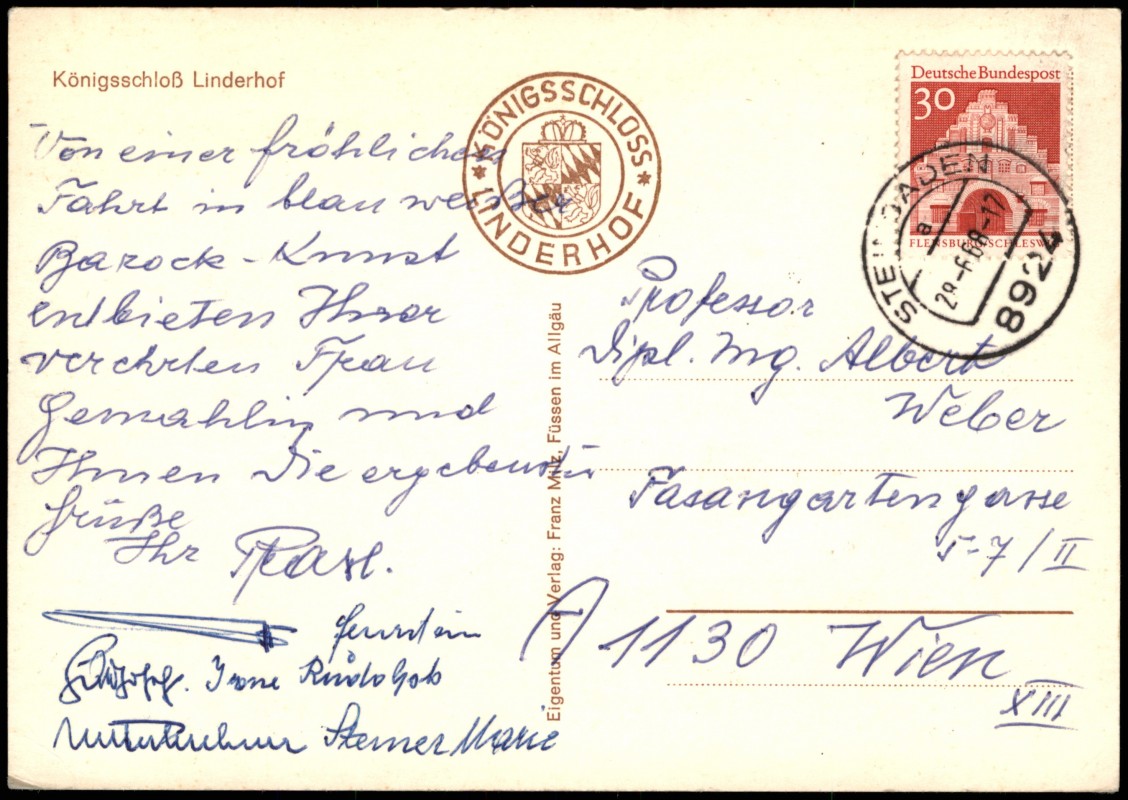 Königsschloß Linderhof
Von einer fröhlichen
Fahrt in blau weißer
Barock-Kunst
entbieten Ihrer
verehrten Frau
Gemahlin und
Ihnen die ergebensten
Grüße
Ihr
Irene Rudolph
Steiner Marie
* KÖNIGSSCHLOSS *
LINDERHOF
Eigentum und Verlag: Franz Milz, Füssen im Allgäu
Deutsche Bundespost
30
FLENSBURG/SCHLESWIG
STEINGADEN
a
28.-6.68-17
8924
Professor
Dipl. Ing. Albert
Weber
Fasangartengasse
5-7/II
A 1130 Wien
XIII